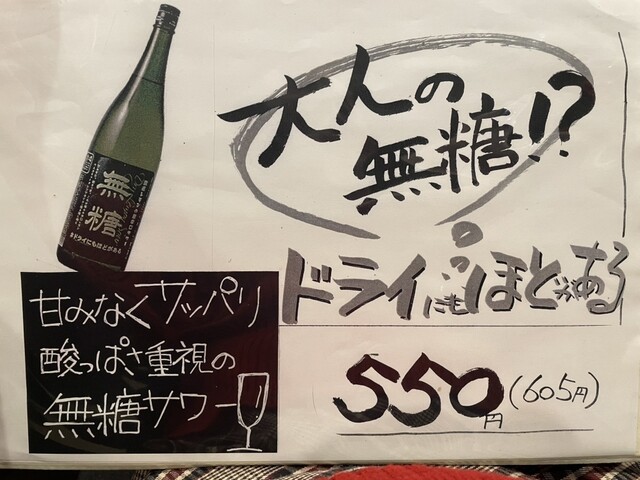 大人の
無糖!?
ドライにもほどがある
無糖
#ドライにもほどがある
甘みなくサッパリ
酸っぱさ重視の
無糖サワー
550円(605円)